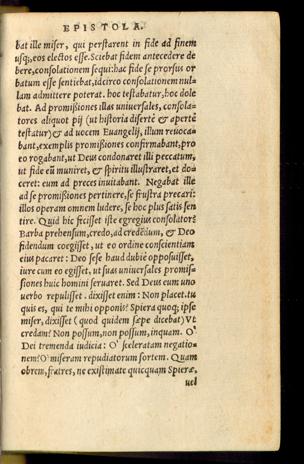 EPISTOLA.
bat ille miser, qui perstarent in fide ad finem
usq;, eos electos esse. Sciebat fidem antecedere de
bere, consolationem sequi: hac fide se prorsus or
batum esse sentiebat, idcirco consolationem nul-
lam admittere poterat. hoc testabatur, hoc dole
bat. Ad promißiones illas universales, consola-
tores aliquot pij (ut historia disertè & apertè
testatur) & ad uocem Euangelij, illum reuoca-
bant, exemplis promißiones confirmabant, pro
eo rogabant, ut Deus condonaret illi peccatum,
ut fide eũ muniret, & spiritu illustraret, et do-
ceret: eum ad preces inuitabant. Negabat ille
ad se promißiones pertinere, se frustra precari:
illos operam omnem ludere, se hoc plus satis sen
tire. Quid hic fecisset iste egregius consolator?
Barba prehensum, credo, ad credẽdum, & Deo
fidendum coegisset, ut eo ordine conscientiam
eius pacaret: Deo sese haud dubiè opposuisset,
iure cum eo egisset, ut suas uniuersales promis-
siones huic homini seruaret. Sed Deus eum uno
uerbo repulisset. dixisset enim: Non placet. tu
quis es, qui te mihi opponis? Spiera quoq; ipse
miser, dixisset (quod quidem sæpe dicebat) Vt
credam? Non possum, non possum, inquam. O'
Dei tremenda iudicia: O' sceleratam negatio-
nem! O' miseram repudiatorum sortem. Quam
obrem, fratres, ne existimate quicquam Spieræ,
uel